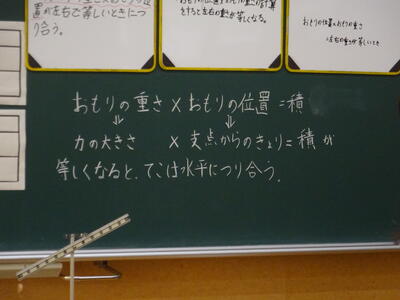 置が左右で等しいときにつ
り合う。
をすると左右の重さが等しくなる。
おもりの位置×おもりの重さ
は左右の重さが等しいとき
おもりの重さ×おもりの位置=積
⇓ ⇓
力の大きさ ×支点からのきょり=積が
等しくなると、てこは水平につり合う。